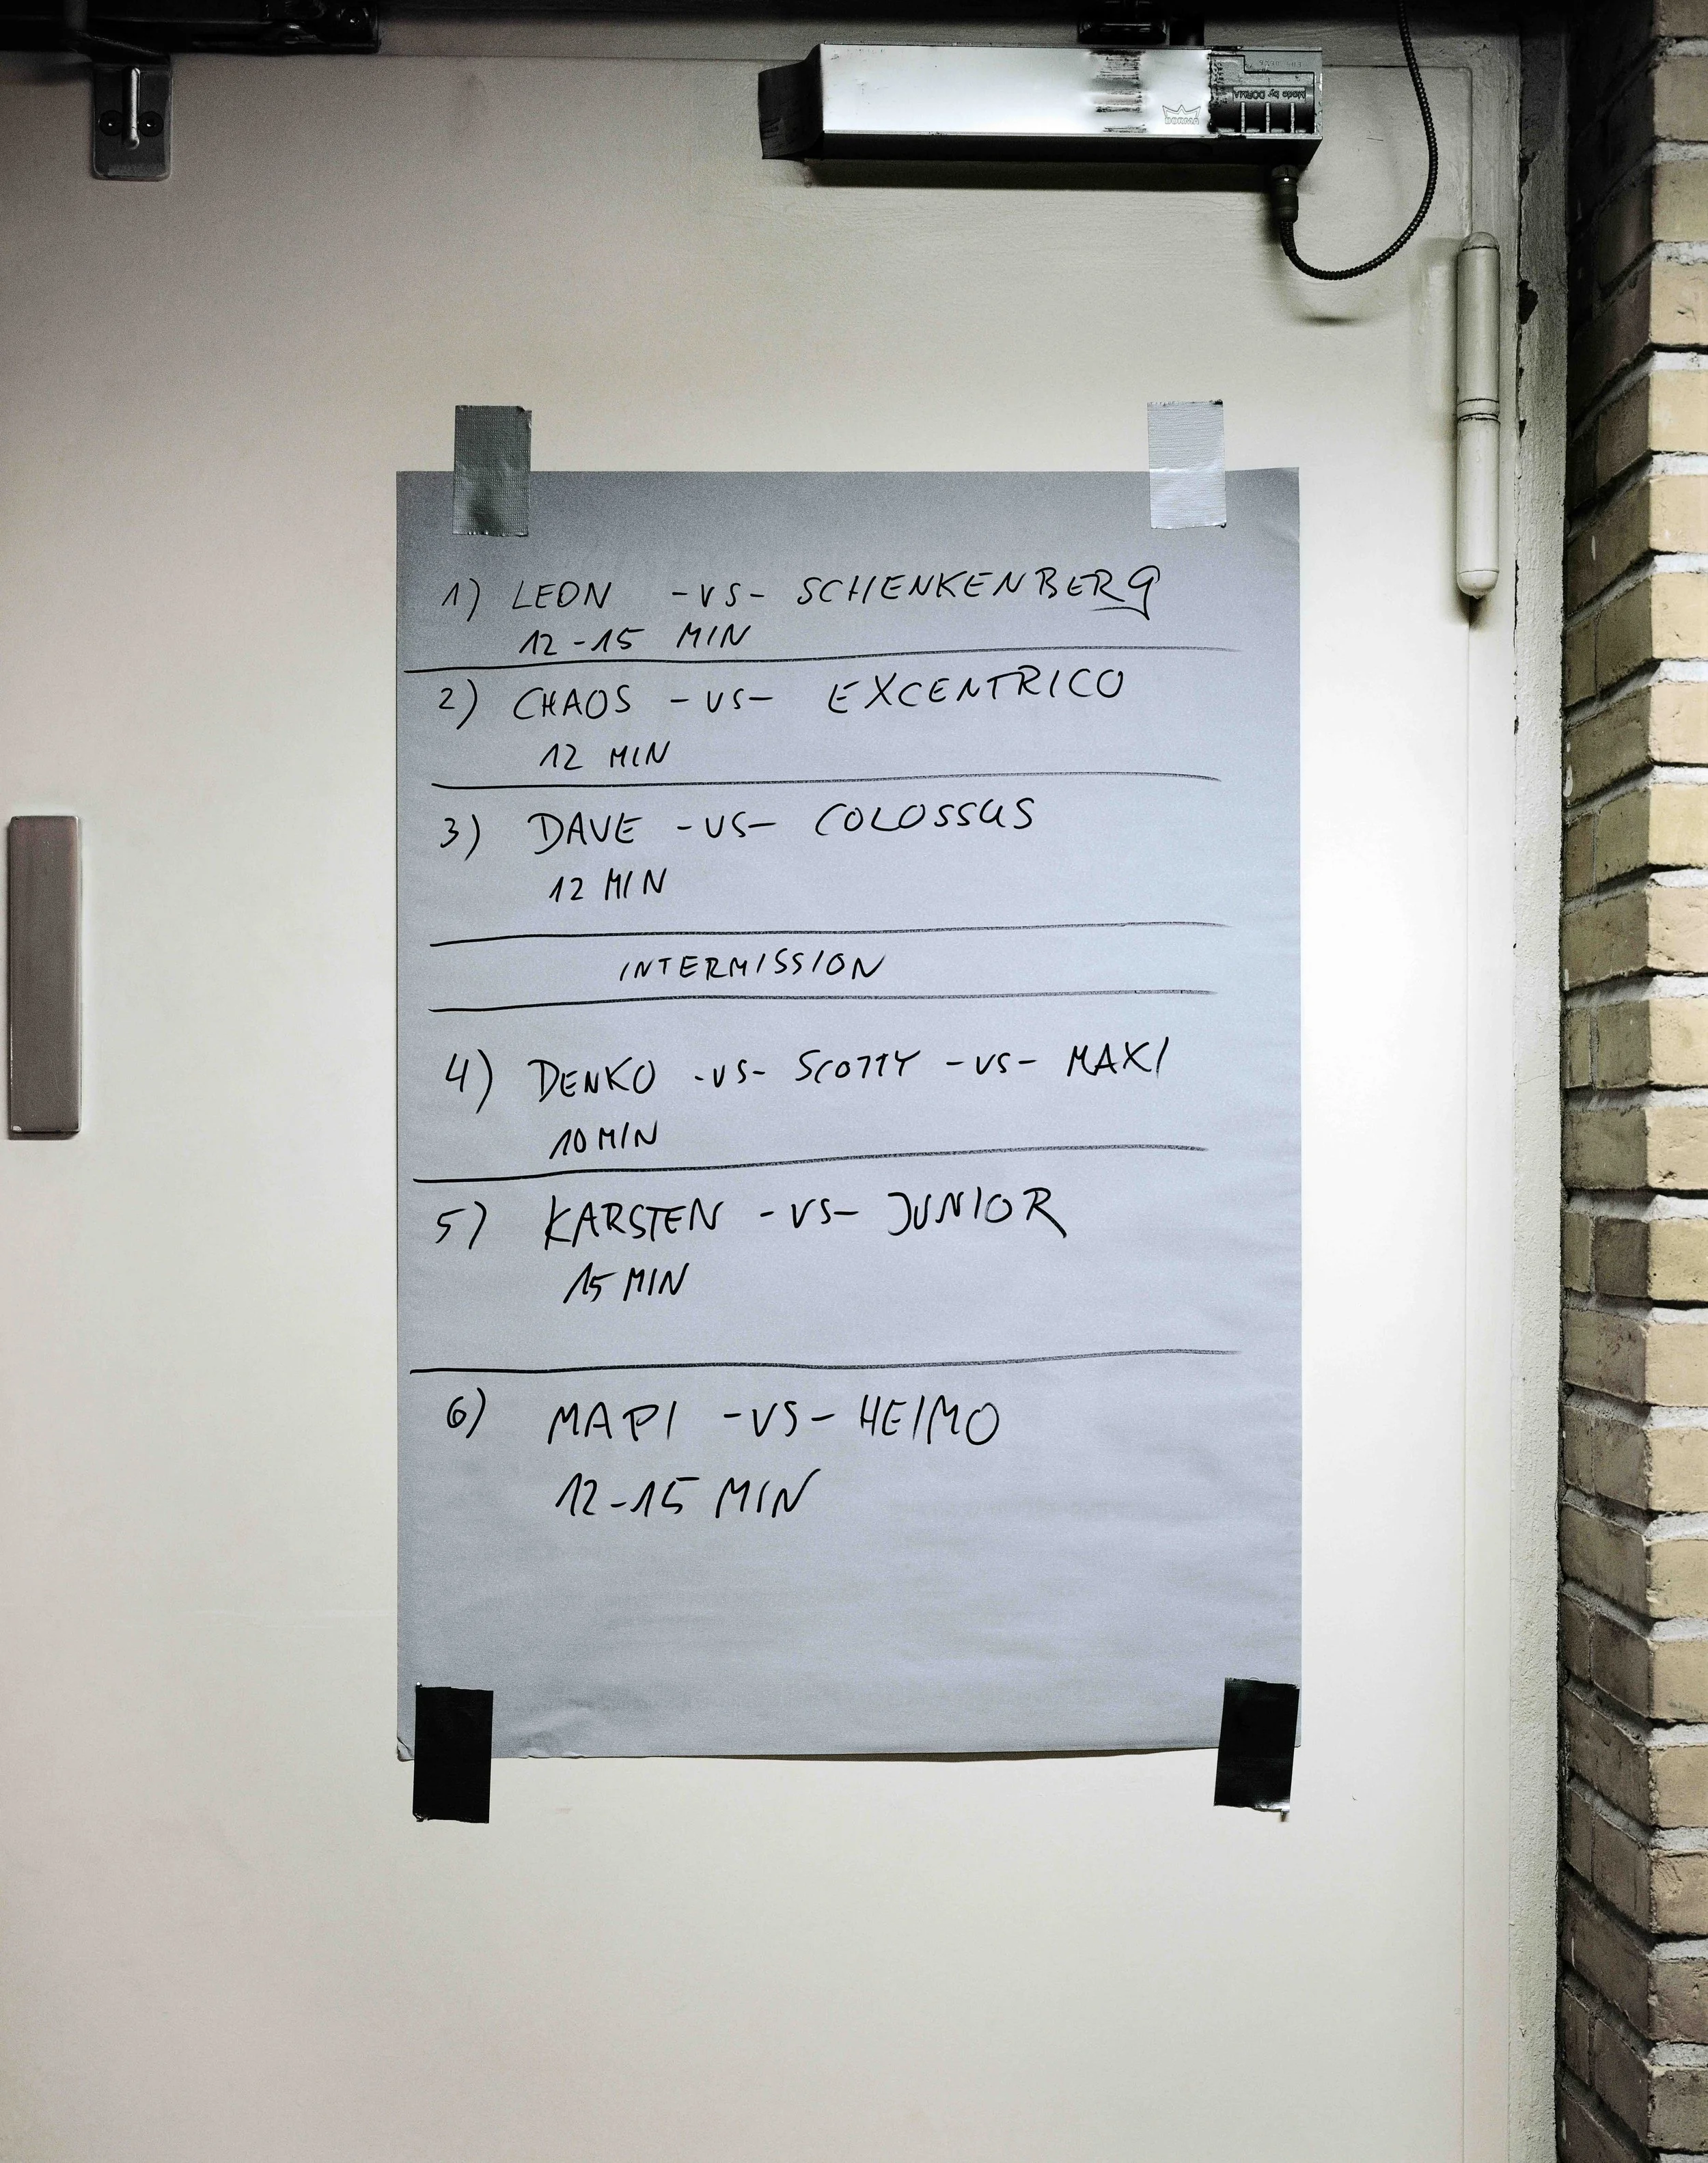 Made by DORMA
DORMA
1) LEON -VS- SCHENKENBERG
12-15 MIN
2) CHAOS -VS- EXCENTRICO
12 MIN
3) DAVE -VS- COLOSSUS
12 MIN
INTERMISSION
4) DENKO -VS- SCOTTY -VS- MAXI
10 MIN
5) KARSTEN -VS- JUNIOR
15 MIN
6) MAPI -VS- HEIMO
12-15 MIN